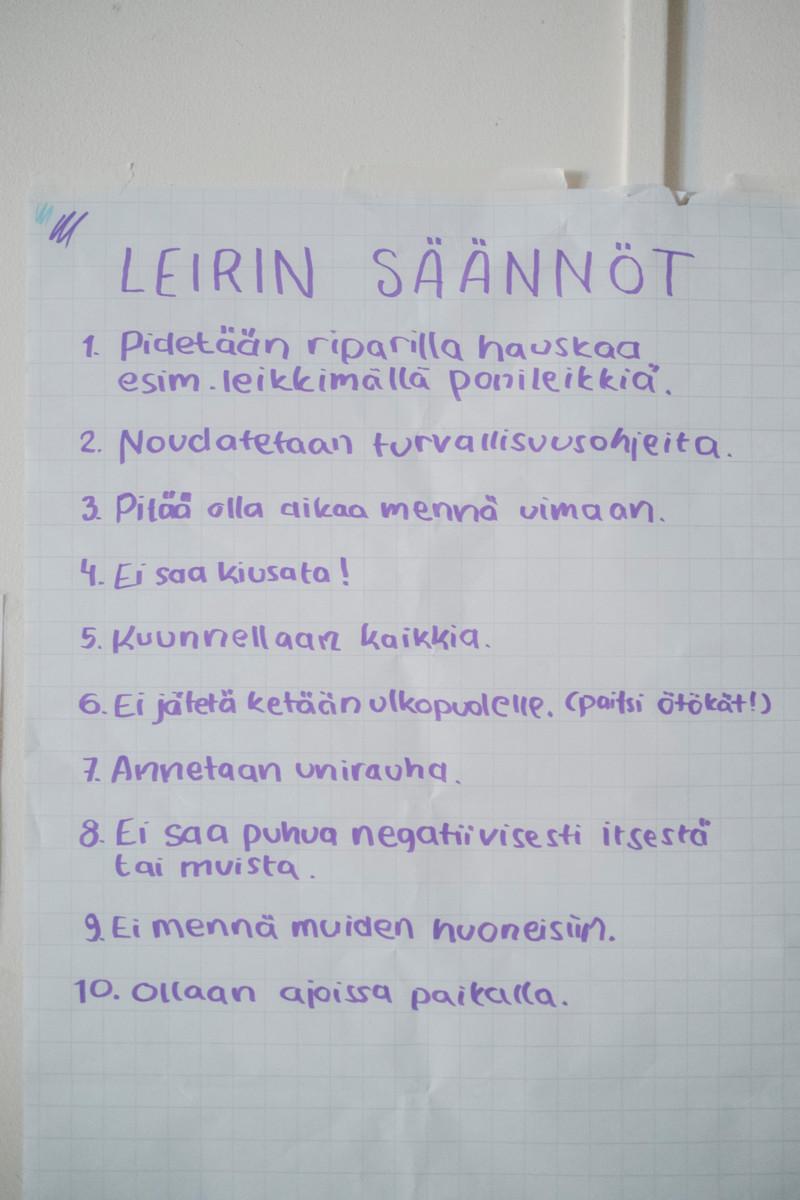 LEIRIN SÄÄNNÖT
1. Pidetään riparilla hauskaa
esim. leikkimällä ponileikkiä.
2. Noudatetaan turvallisuusohjeita.
3. Pitää olla aikaa mennä uimaan.
4. Ei saa kiusata!
5. Kuunnellaan kaikkia.
6. Ei jätetä ketään ulkopuolelle. (paitsi ötökät!)
7. Annetaan unirauha.
8. Ei saa puhua negatiivisesti itsestä
tai muista.
9. Ei mennä muiden huoneisiin.
10. Ollaan ajoissa paikalla.